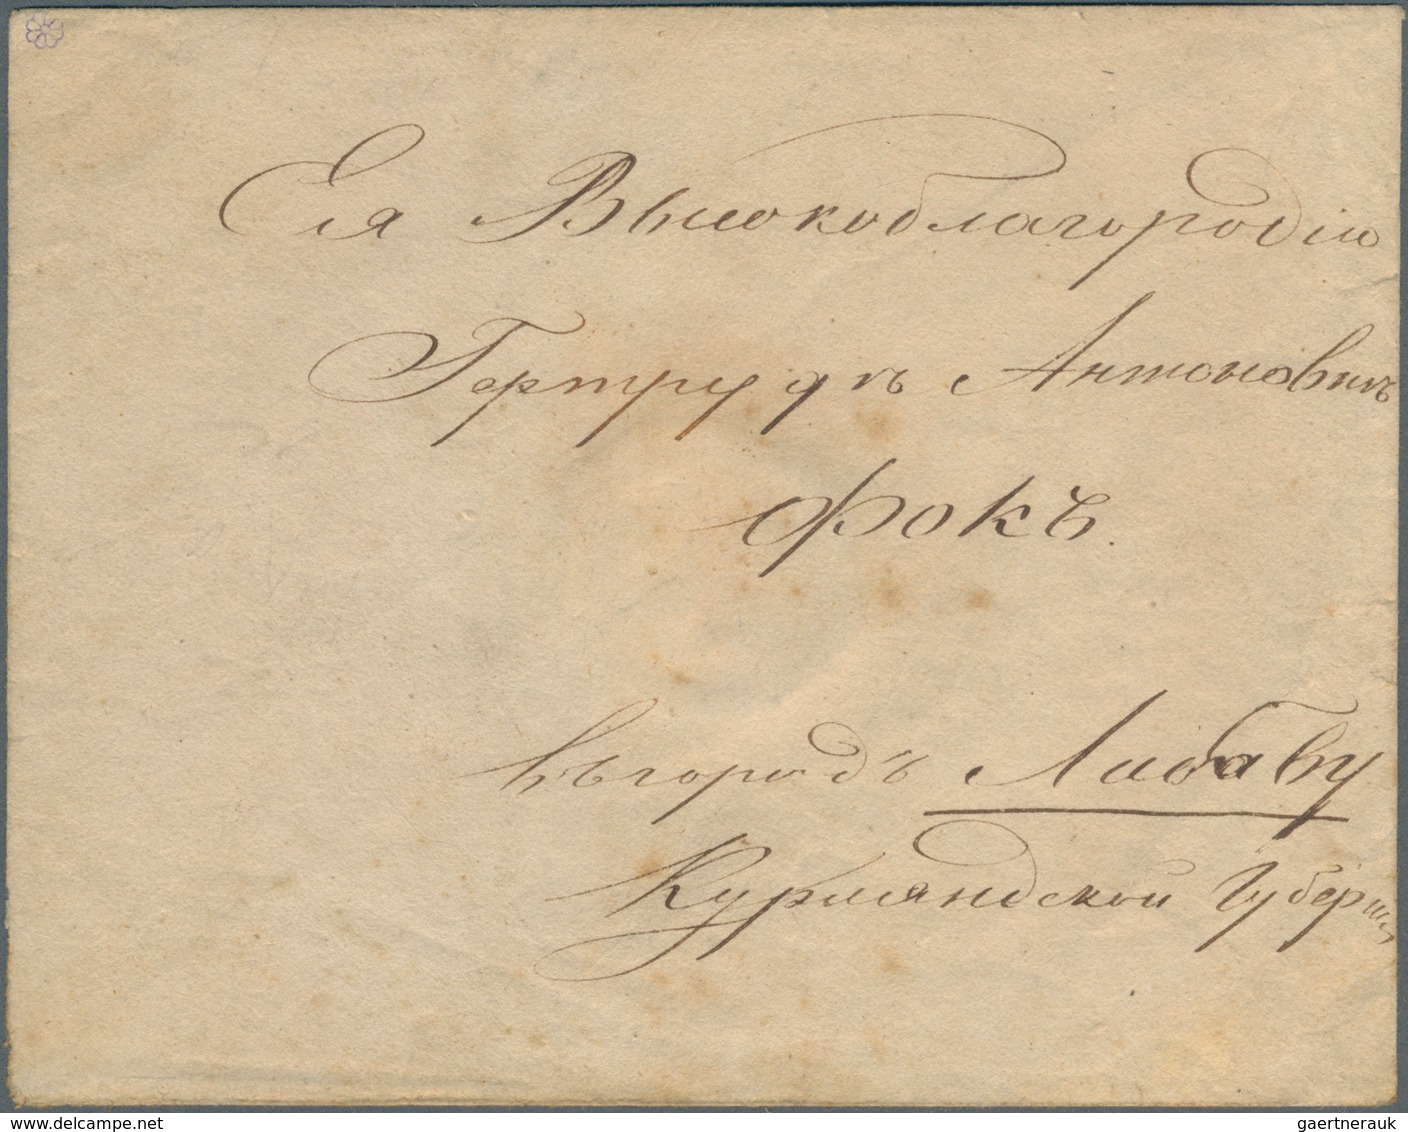 Ея Высокоблагородію
Гертрудъ Антоновнѣ
Фокъ.
въ городъ Либаву
Курляндской Губерніи
delcampe.net
gaertnerauk